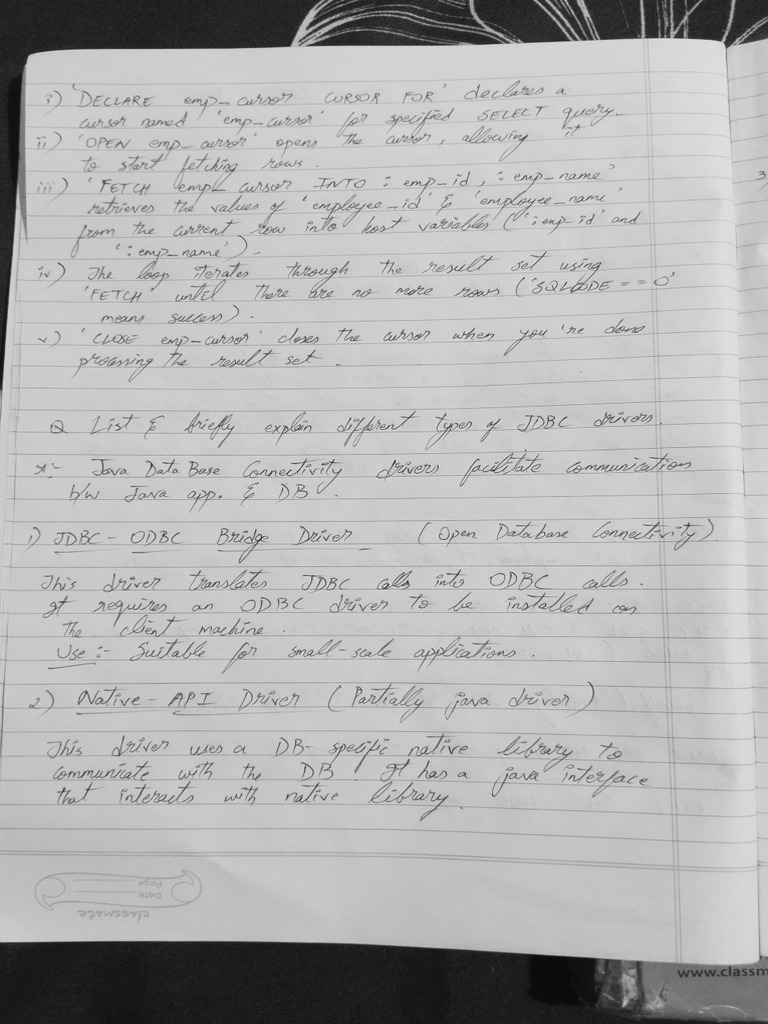 i) 'DECLARE emp_cursor CURSOR FOR' declares a
cursor named 'emp_cursor' for specified SELECT query.
ii) 'OPEN emp_cursor' opens the cursor, allowing it
to start fetching rows.
iii) 'FETCH emp_cursor INTO :emp_id, :emp_name'
retrieves the values of 'employee_id' & 'employee_name'
from the current row into host variables (':emp_id' and
':emp_name').
iv) The loop iterates through the result set using
'FETCH' until there are no more rows ('SQLCODE == 0'
means success).
v) 'CLOSE emp_cursor' closes the cursor when you're done
processing the result set.
Q List & briefly explain different types of JDBC drivers.
Java DataBase Connectivity drivers facilitate communication
b/w Java app. & DB.
1) JDBC - ODBC Bridge Driver (Open Database Connectivity)
This driver translates JDBC calls into ODBC calls.
It requires an ODBC driver to be installed on
the client machine.
Use :- Suitable for small-scale applications.
2) Native - API Driver (Partially java driver)
This driver uses a DB-specific native library to
communicate with the DB. It has a java interface
that interacts with native library.
classmate
Date
Page
3)
www.classm